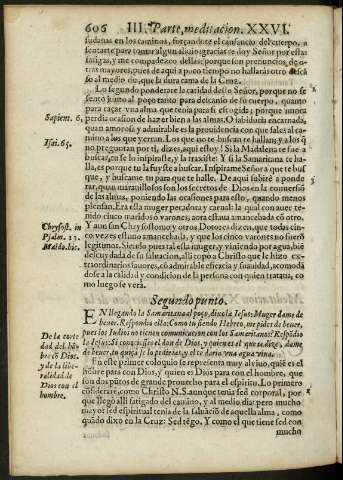 606 III. Parte, meditacion. XXVI.
sudanas en los caminos, forçandote el cansancio del cuerpo, a
sentarte para tomar algun alivio: gracias te doy Señor por estas
fatigas, y me compadezco dellas: porque son pronuncios, de o-
tras mayores, pues de aqui a poco tiempo no hallaràs otro descã
so al medio dia, que la dura cama de la Cruz.
Lo segundo ponderarè la caridad deste Señor, porque no se
sentò junto al poço tanto para descanso de su cuerpo, quanto
para caçar vna alma que tenia para si escogida; porque nunca
perdia ocasion de hazer bien a las almas. O sabiduria encarnada,
Sapient. 6.
quan amorosa y admirable es la prouidencia con que sales al ca-
mino a los que yerran. Los que no te buscan te hallan; y a los q̃
Isai. 65.
no preguntan por ti, dizes, aqui estoy! Si la Madalena te fue a
buscar, es
se lo inspiraste, y la traxiste! Y si la Samaritana te ha-
lla, es porque tu la fuyste a buscar. Inspirame Señor a que te bus-
que, y buscame tu para que te halle. De aqui subirè a ponde
rar, quan marauillosos son los secretos de Dios en la conuersiõ
de las almas, poniendo las ocasiones para esto, quando menos
piensan. Era esta muger perdida y carnal: la qual con auer te-
nido cinco maridos o varones, aora estaua amancebada cõ otro.
Chrysost. in
Psalm. 13.
Maldo. hic.
Y aun san Chrysostomo y otros Dotores dizen, que todas cin-
co vezes estuuo amancebada, y que los cinco varones no fuerõ
legitimos. Siendo pues tal esta muger, y viniendo por agua, biẽ
descuydada de su saluacion, alli topò a Christo que le hizo ex-
traordinarios fauores, cõ admirable eficacia y suauidad, acomodã
dose a la calidad y condicion de la persona con quien trataua, co
mo luego se verà.
Segundo punto.
EN llegando la Samaritana al poço, dixola Iesus: Muger dame de
beuer. Respondio ella: Como tu siendo Hebreo, me pides de beuer,
pues los Iudios no tienen comunicacion con los Samaritanos? Respõdio
la Iesus: Si conociesses el don de Dios, y quien es el que te dize, dame
de beuer, tu quiça se lo pedirias, y el te daria vna agua viua.
De la corte
dad del hõ-
bre cõ Dios,
y de la libe-
ralidad de
Dios con el
hombre.
En este primer coloquio se representa muy al viuo, quiẽ es el
hõbre para con Dios, y quien es Dios para con el hombre, que
son dos pũtos de grande prouecho para el espiritu. Lo primero
considerarè, como Christo N.S. aunque tenia sed corporal, por
que llegò alli fatigado del camino, y al medio dia: pero mucho
mayor sed espiritual tenia de la saluaciõ de aquella alma, como
quando dixo en la Cruz: Sed tẽgo. Y como el que tiene sed con
mucho